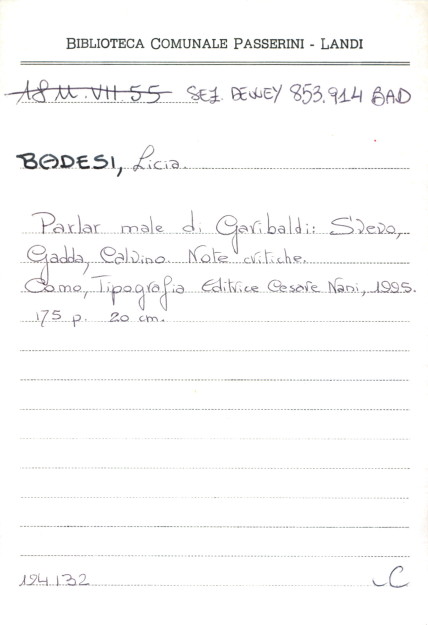 BIBLIOTECA COMUNALE PASSERINI - LANDI
18 M. VII. 55 SEZ. DEWEY 853.914 BAD
BADESI, Licia.
Parlar male di Garibaldi: Svevo,
Gadda, Calvino. Note critiche.
Como, Tipografia Editrice Cesare Nani, 1995.
175 p. 20 cm.
194132 C